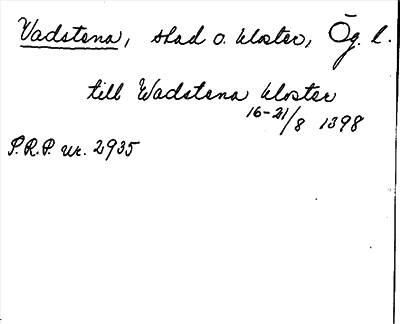 Vadstena, stad o. kloster, Ög. l.
till Wadstena kloster
16-21/8 1398
P.R.P. nr. 2935